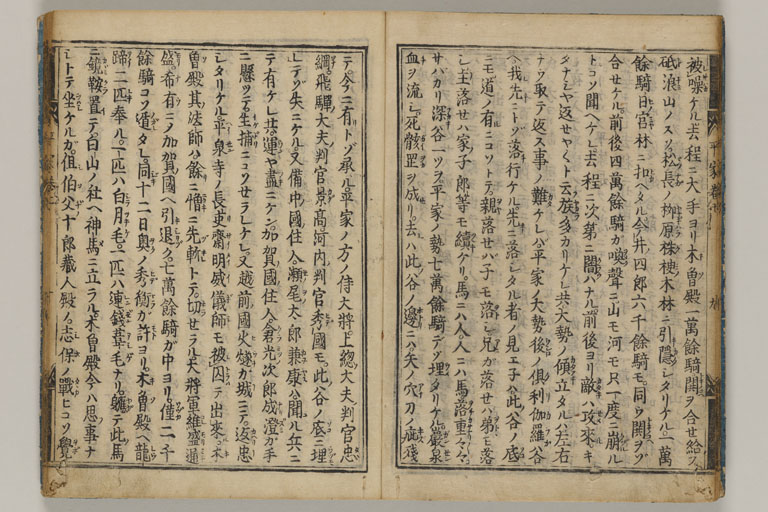 被噪ケル去程ニ大手ヨリ木曽殿一萬餘騎鬨ヲ合セ給フ
砥浪山ノスソ松長ノ柳原株梗木林ニ引隠シタリケル一萬
餘騎日宮林ニ扣ヘタル今井四郎六千餘騎モ同ウ鬨ヲゾ
合セケル前後四萬餘騎カ喚聲ニ山モ河モ只一度ニ崩ル
トコソ聞ヘケレ去程ニ次第ニ闇ハナル前後ヨリ敵ハ攻來ル
キタナシヤ返セヤ〱ト云族多カリケレ共大勢ノ傾立タルハ左右
ナウ取テ返ス事ノ難ケレハ平家ノ大勢後ノ倶利伽羅谷
ヘ我先ニトゾ落行ケル先ニ落シタル者ノ見エ子ハ此谷ノ底
ニモ道ノ有ニコソトテ親落セハ子モ落シ兄カ落セハ弟モ落
シ主落セハ家子郎等モ續ケリ馬ニハ人人ニハ馬落重々々
サハカリ深谷一ツヲ平家ノ勢七萬餘騎デゾ埋タリケル巖泉
血ヲ流シ死骸罡ヲ成リ去ハ此谷ノ邊ニハ矢ノ穴刀ノ疵殘
テ今ニ有トゾ承ル平家ノ方ノ侍大將上總大夫判官忠
綱飛騨大夫判官景高河内判官秀國モ此谷ノ底ニ埋
レテゾ失ニケル又備中國住人瀬尾太郎兼康ハ聞ル兵ニ
テ有ケレ共運ヤ盡ニケン加賀國住人倉光次郎成澄カ手
ニ懸ツテ生捕ニコソセラレケレ又越前國火燧カ城ニテ返忠
シタリケル平泉寺ノ長吏齋明威儀師モ被囚テ出來木
曽殿其法師ハ餘ニ憎ニ先斬トテ切セラル大將軍維盛通
盛希有ニノ加賀國ヘ引退ク七萬餘騎カ中ヨリ僅ニ二千
餘騎コソ遁タレ同十二日奥ノ秀衡カ許ヨリ木曽殿ヘ龍
蹄二匹奉ル一匹ハ白月毛一匹ハ連錢葦毛ナリ軈テ此馬
ニ鏡鞍置テ白山ノ社ヘ神馬ニ立ラル木曽殿今ハ思事ナ
シトテ坐ケルカ但伯父十郎藏人殿ノ志保ノ戰ヒコソ覺